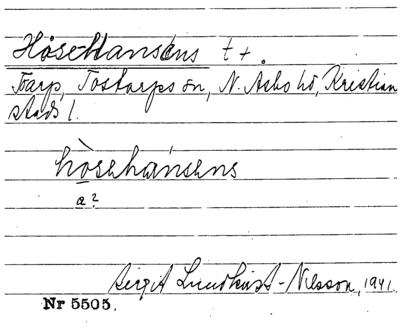 HöseHansens t+.
Tarp, Tostarps sn, N. Asbo hd, Kristian
stads l.
hösehansens
a?
Birgit Lundkvist-Nilsson, 1941.
Nr 5505.